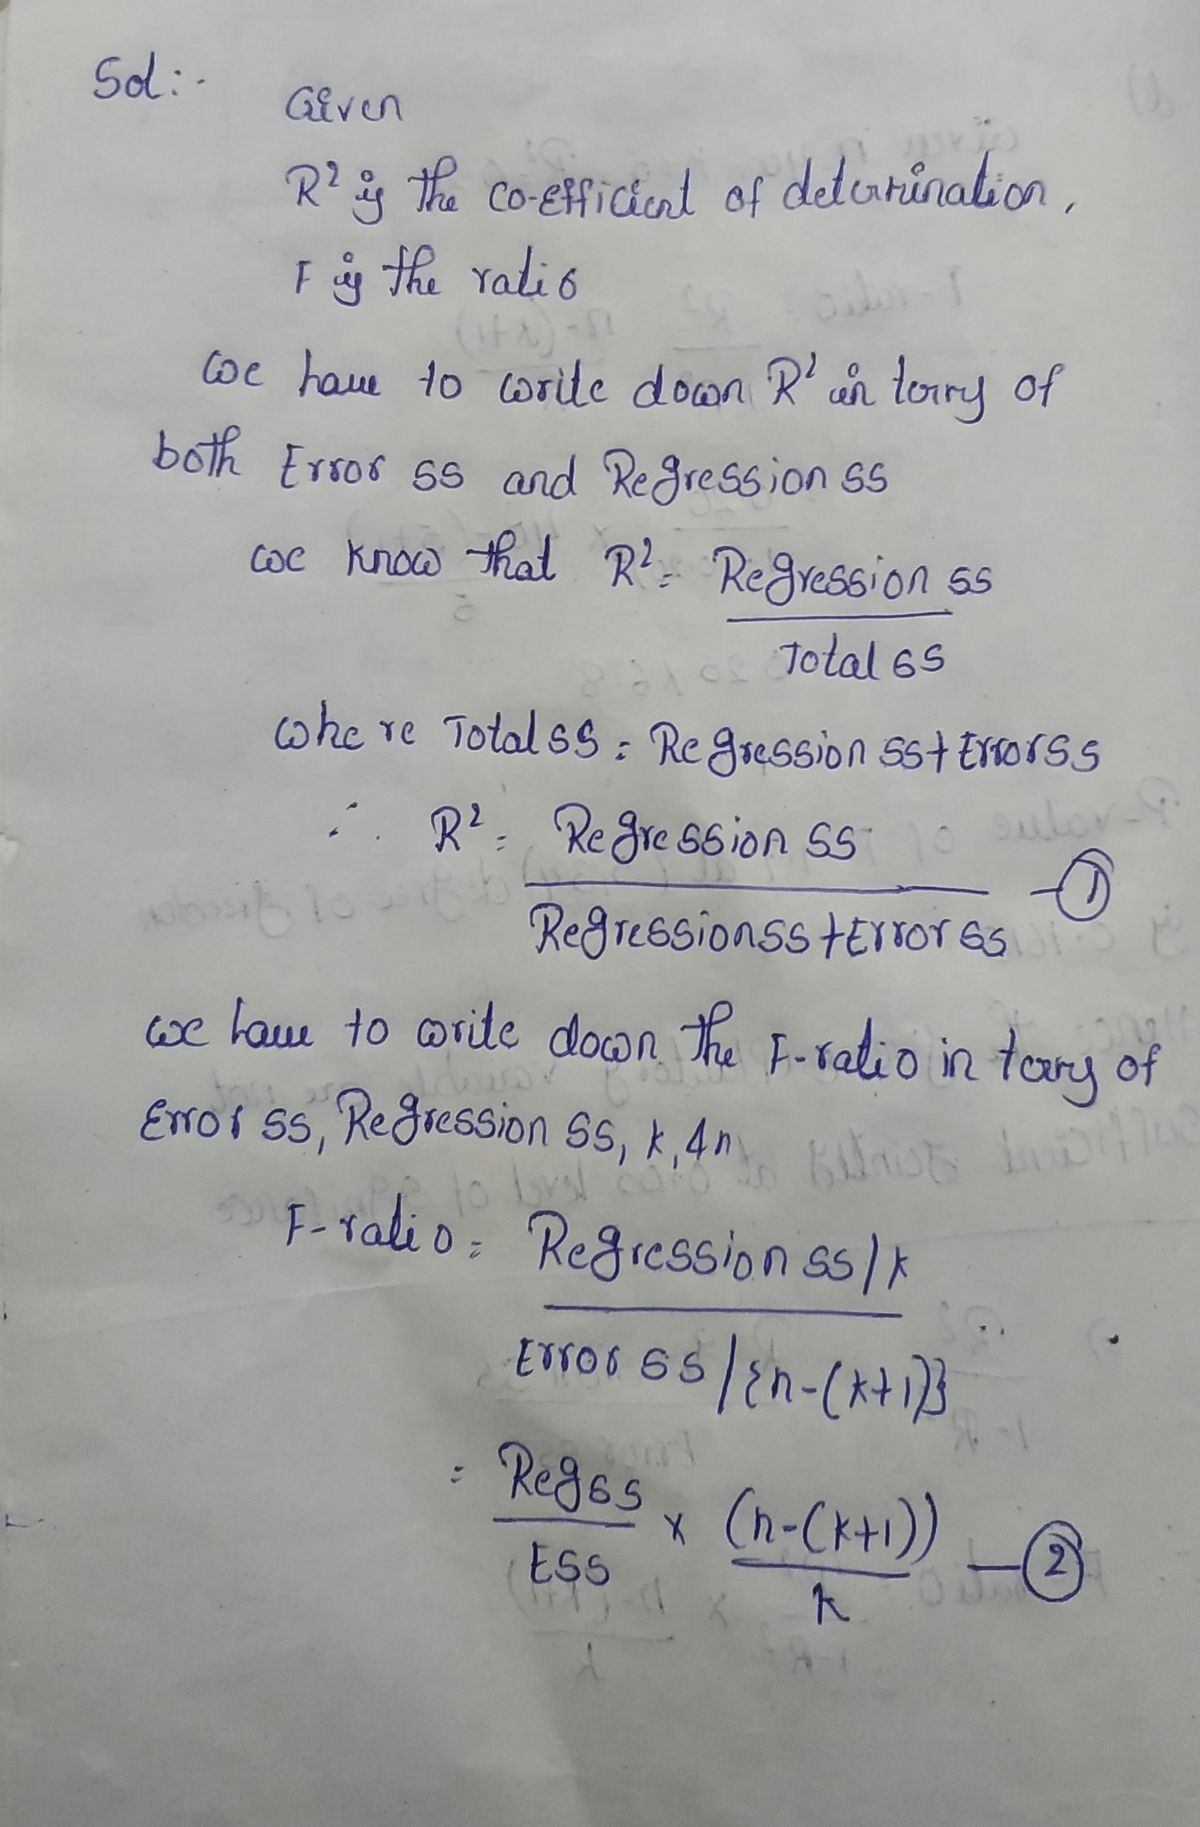 Sol:-
Given
R² is the co-efficient of determination.
F is the ratio
we have to write down R² in terms of
both Error SS and Regression SS
we know that R² = Regression SS
Total SS
where Total SS = Regression SS + Error SS
∴ R² = Regression SS — ①
Regression SS + Error SS
we have to write down the F-ratio in terms of
Error SS, Regression SS, k, & n
F-ratio = Regression SS/k
Error SS/{n-(k+1)}
= Reg SS × (n-(k+1)) — ②
ESS k